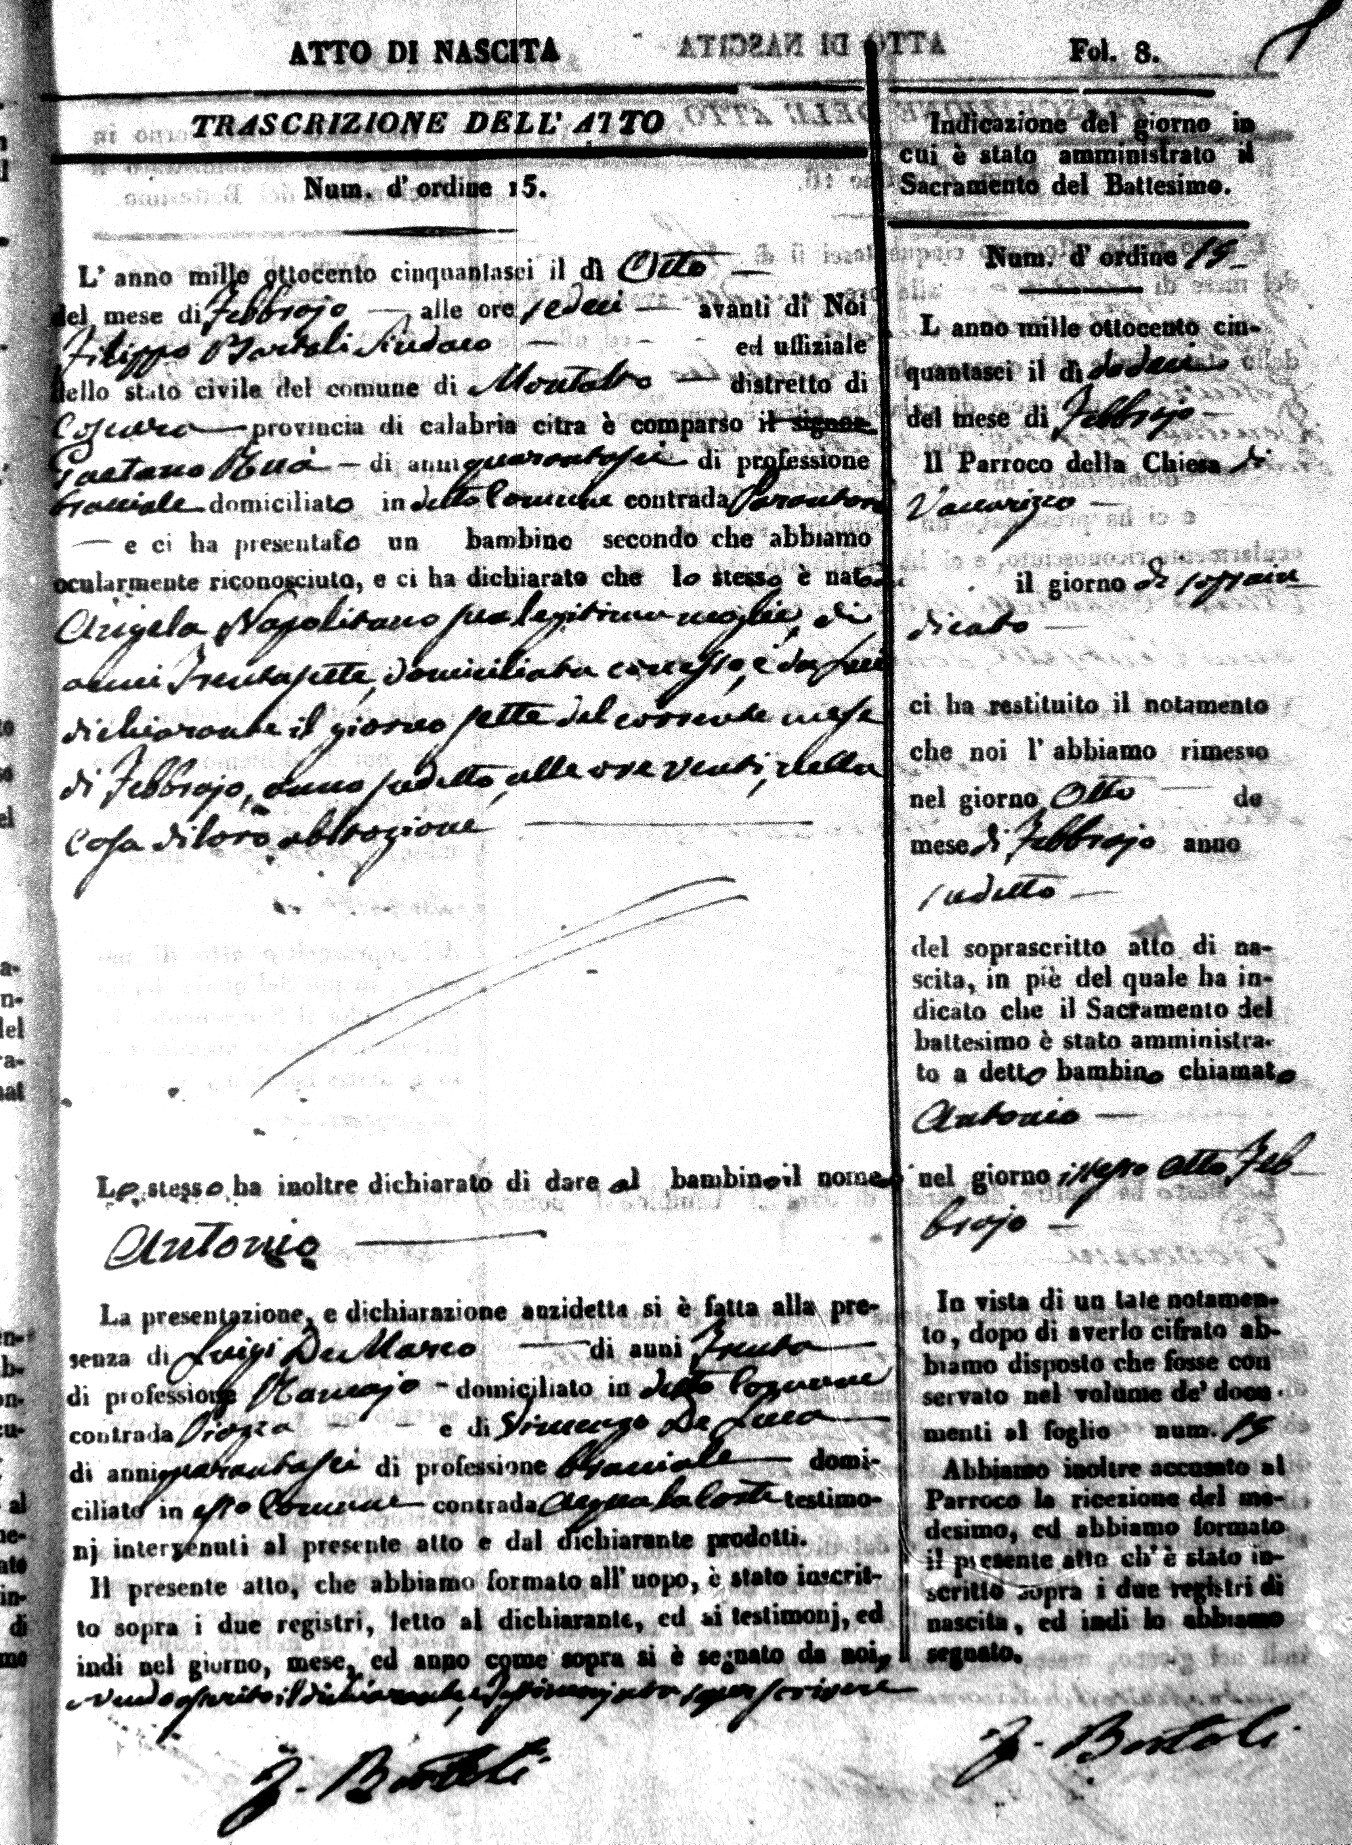 ATTO DI NASCITA
Fol. 8.
TRASCRIZIONE DELL' ATTO
Num. d' ordine 15.
L' anno mille ottocento cinquantasei il dì Otto
del mese di Febbrajo alle ore sedeci avanti di Noi
Filippo Bartoli Sindaco ed uffiziale
dello stato civile del comune di Montalto distretto di
Cosenza provincia di calabria citra è comparso il signor
Gaetano di anni quarantasei di professione
bracciale domiciliato in detto Comune contrada
e ci ha presentato un bambino secondo che abbiamo
ocularmente riconosciuto, e ci ha dichiarato che lo stesso è nato da
Angela Napolitano sua legittima moglie, di
anni Trentasette, domiciliata con esso, e da lui
dichiarante il giorno sette del corrente mese
di Febbrajo, anno sudetto, alle ore venti, nella
casa di loro abitazione
Lo stesso ha inoltre dichiarato di dare al bambino il nome
Antonio
La presentazione, e dichiarazione anzidetta si è fatta alla pre-
senza di Luigi De Marco di anni Trenta
di professione domiciliato in detto Comune
contrada e di Vincenzo De Luca
di anni quarantasei di professione bracciale domi-
ciliato in esso Comune contrada Acqua la Corte testimo-
nj intervenuti al presente atto e dal dichiarante prodotti.
Il presente atto, che abbiamo formato all' uopo, è stato inscrit-
to sopra i due registri, letto al dichiarante, ed ai testimonj, ed
indi nel giorno, mese, ed anno come sopra si è segnato da noi,
avendo asserito il dichiarante, e testimonj non saper scrivere
F. Bartoli
Indicazione del giorno in
cui è stato amministrato il
Sacramento del Battesimo.
Num. d' ordine 15
L anno mille ottocento cin-
quantasei il dì dodeci
del mese di Febbrajo
Il Parroco della Chiesa di
Vaccarizzo
il giorno di soprain
dicato
ci ha restituito il notamento
che noi l' abbiamo rimesso
nel giorno Otto de
mese di Febbrajo anno
sudetto
del soprascritto atto di na-
scita, in piè del quale ha in-
dicato che il Sacramento del
battesimo è stato amministra-
to a detto bambino chiamato
Antonio
nel giorno istesso Otto Feb
brajo
In vista di un tale notamen-
to, dopo di averlo cifrato ab-
biamo disposto che fosse con
servato nel volume de' docu-
menti al foglio num. 15
Abbiamo inoltre accusato al
Parroco la ricezione del me-
desimo, ed abbiamo formato
il presente atto ch' è stato in-
scritto sopra i due registri di
nascita, ed indi lo abbiamo
segnato.
F. Bartoli